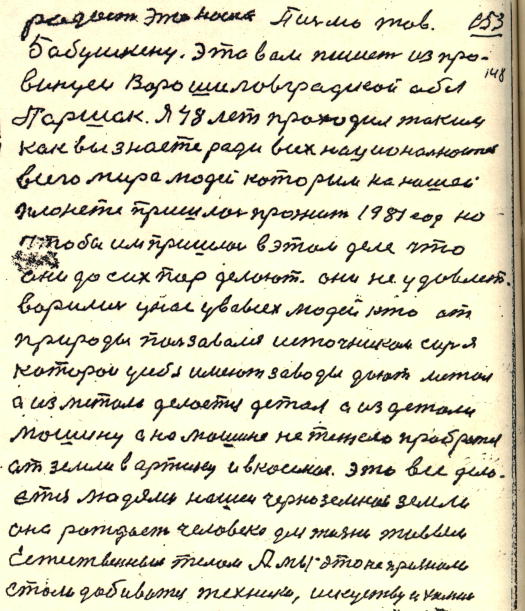 радост это нося Письмо тов. 053
Бабушкину. Это вам пишет из про- 148
винцеи Ворошиловградской обл
Паршак. Я 48 лет проходил таким
как вы знаете ради всех национальностей
всего мира людей которым на нашей
планете пришлос прожит 1981 год но
штобы им пришлос в этом деле что
они до сих пор делают. они не удовлет-
ворилис у нас у ввсех людей кто от
природы ползавался источником сыря
которой у себя имеют заводы дают метал
а из металь делается детал а из детали
машину а на машине не тяжело пробратся
от земли в артику и в космос. Это все дела-
ется людями нашей черноземной земле
она рождает человека для жизни живым
Естественным телом А мы это не признали
стали добиватся техники, искуству и химии